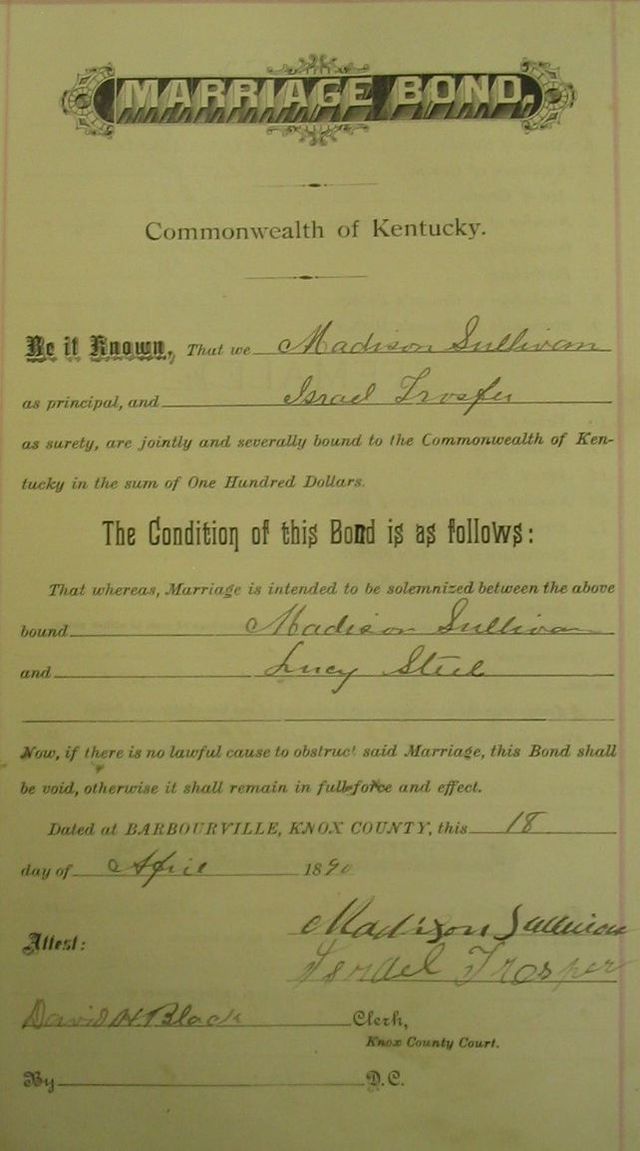 MARRIAGE BOND,
Commonwealth of Kentucky.
Be it Known, That we Madison Sullivan
as principal, and Israel Trosper
as surety, are jointly and severally bound to the Commonwealth of Ken-
tucky in the sum of One Hundred Dollars.
The Condition of this Bond is as follows:
That whereas, Marriage is intended to be solemnized between the above
bound Madison Sullivan
and Lucy Steel
Now, if there is no lawful cause to obstruct said Marriage, this Bond shall
be void, otherwise it shall remain in full force and effect.
Dated at BARBOURVILLE, KNOX COUNTY, this 18
day of April 1890
Attest: Madison Sullivan
Israel Trosper
David H Black Clerk,
Knox County Court.
By D.C.